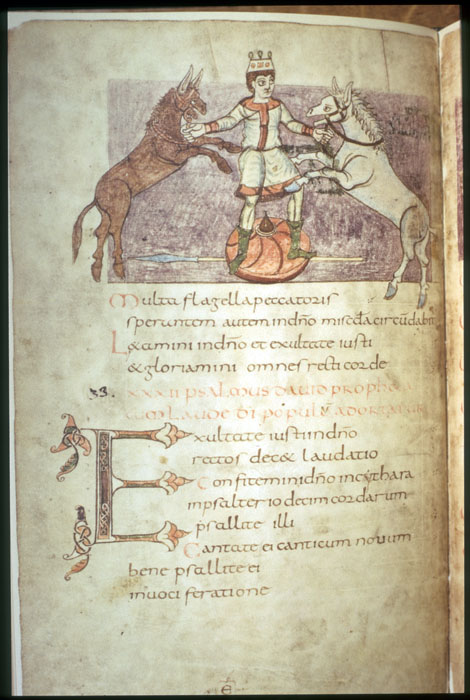 Multa flagella peccatoris
sperantem autem indño misedᷓa circũdabit
Laetamini indño et exultate iusti
& gloriamini omnes recti corde
33. XXXII PSALMUS DAVID PROPHE
CUM LAUDE DĪ POPULI ADORTATUR
Exultate iusti indño
rectos dec& laudatio
Confitemini dño incythara
inpsalterio decim cordarum
psallite illi
Cantate ei canticum novum
bene psallite ei
invociferatione